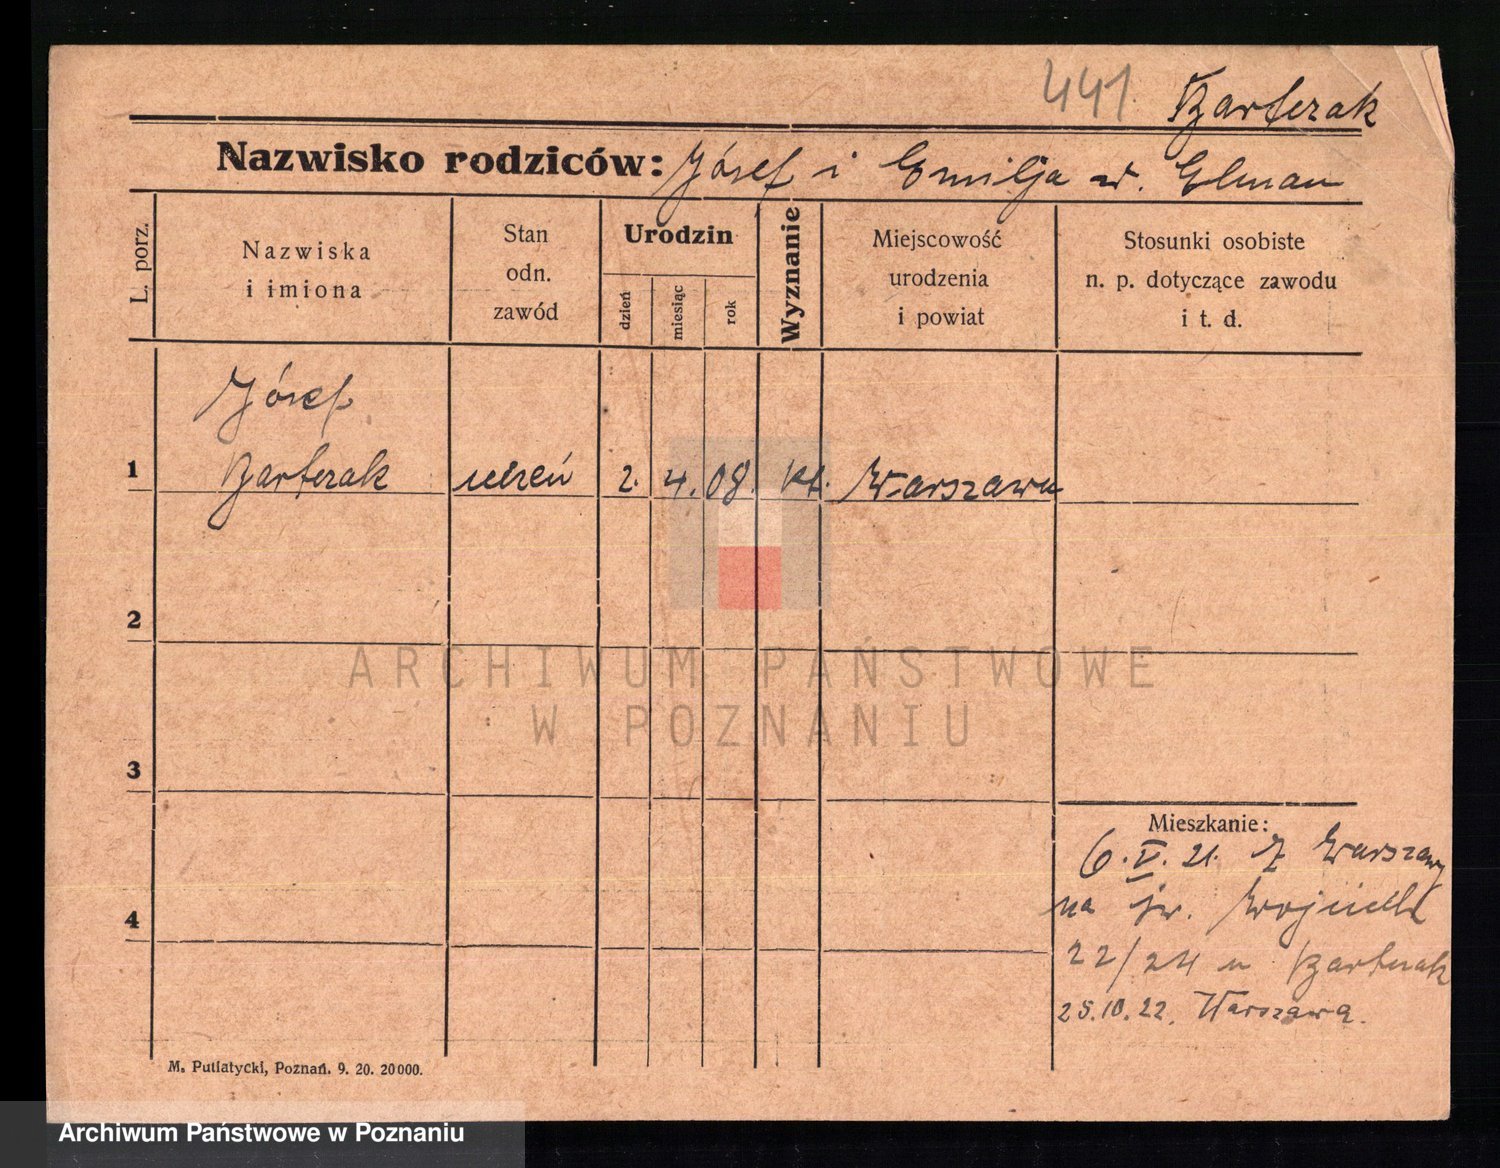 441
Bartczak
Nazwisko rodziców: Józef i Emilja w. Elman
L. porz.
Nazwiska
i imiona
Stan
odn.
zawód
Urodzin
dzień
miesiąc
rok
Wyznanie
Miejscowość
urodzenia
i powiat
Stosunki osobiste
n. p. dotyczące zawodu
i t. d.
Józef
1 Bartczak uczeń 2. 4. 08. kt. Warszawa
2
ARCHIWUM PAŃSTWOWE
W POZNANIU
3
Mieszkanie:
6.V.21. z Warszawy
na św. Wojciech
4
22/24 u Bartczak
25.10.22. Warszawa.
M. Putiatycki, Poznań. 9. 20. 20000.
Archiwum Państwowe w Poznaniu